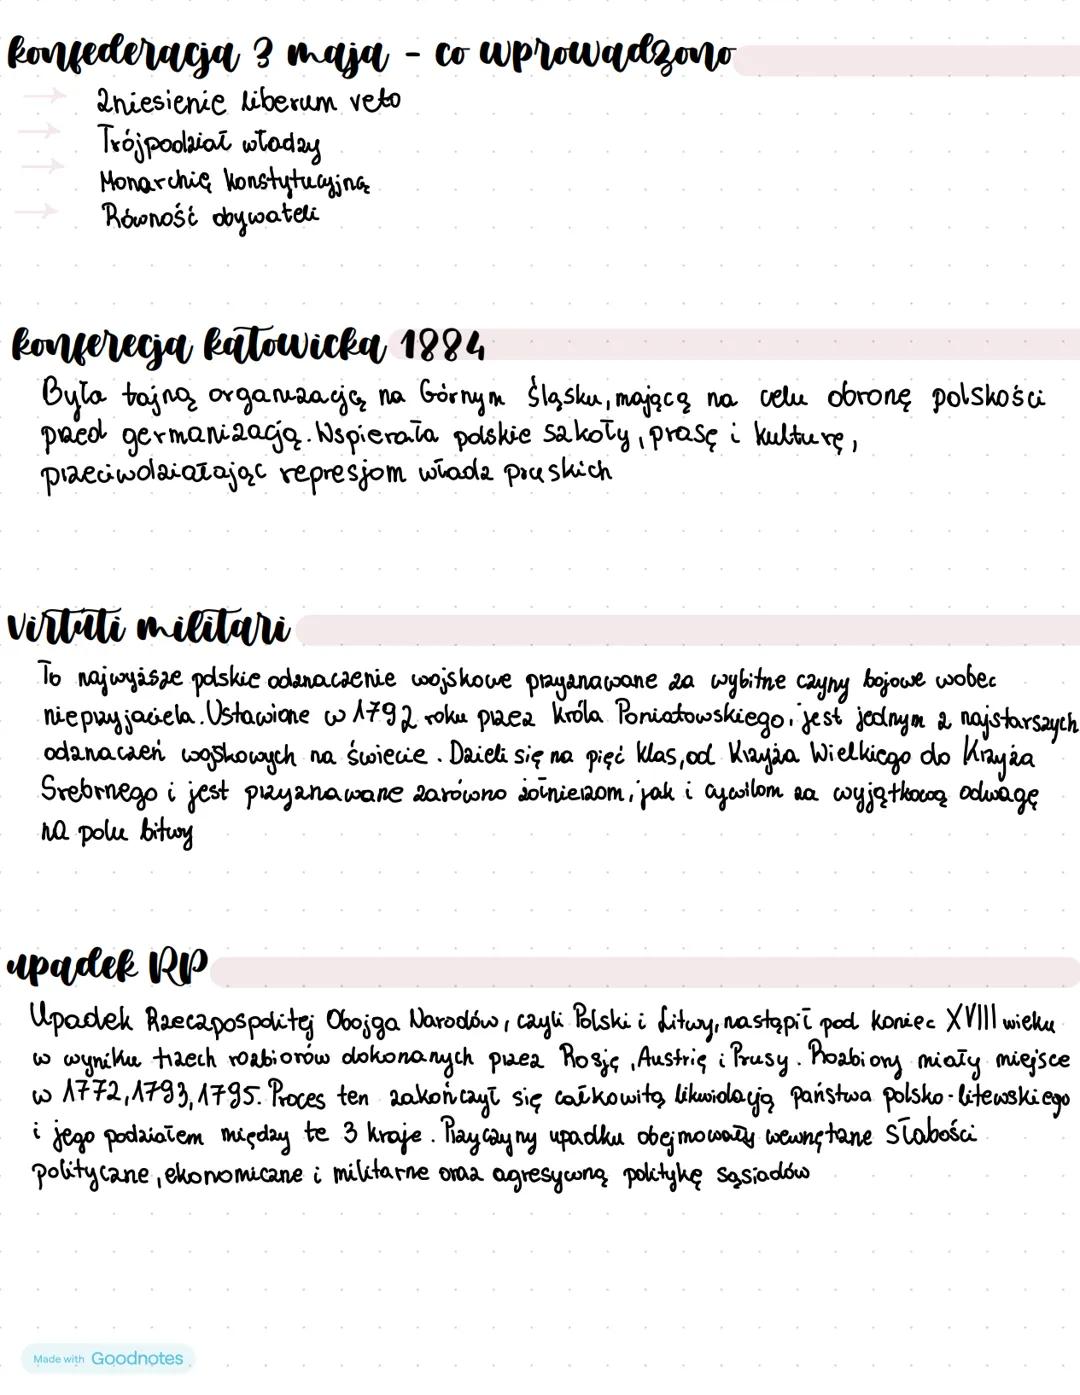 konfederacja 3 maja - co wprowadzono
zniesienie liberum veto
Trójpodział władzy
Monarchię konstytucyjną
Równość obywateli
konferecja katowicka 1884
Była tajną organizacją na Górnym Śląsku, mającą na celu obronę polskości
przed germanizacją. Wspierała polskie szkoły, prasę i kulturę,
przeciwdziałając represjom władz pruskich
virtuti militari
To najwyższe polskie odznaczenie wojskowe przyznawane za wybitne czyny bojowe wobec
nieprzyjaciela. Ustawione w 1792 roku przez króla Poniatowskiego, jest jednym z najstarszych
odznaczeń wojskowych na świecie. Dzieli się na pięć klas, od Krzyża Wielkiego do Krzyża
Srebrnego i jest przyznawane zarówno żołnierzom, jak i cywilom za wyjątkową odwagę
na polu bitwy
upadek RP
Upadek Rzeczpospolitej Obojga Narodów, czyli Polski i Litwy, nastąpił pod koniec XVIII wieku
w wyniku trzech rozbiorów dokonanych przez Rosję, Austrię i Prusy. Rozbiory miały miejsce
w 1772, 1793, 1795. Proces ten zakończył się całkowitą likwidacją państwa polsko-litewskiego
i jego podziałem między te 3 kraje. Przyczyny upadku obejmowały wewnętrzne słabości
polityczne, ekonomiczne i militarne oraz agresywną politykę sąsiadów
Made with Goodnotes